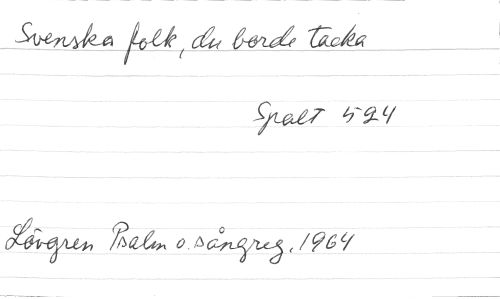 Svenska folk, du borde tacka
Spalt 524
Lövgren Psalm o. sångreg. 1964